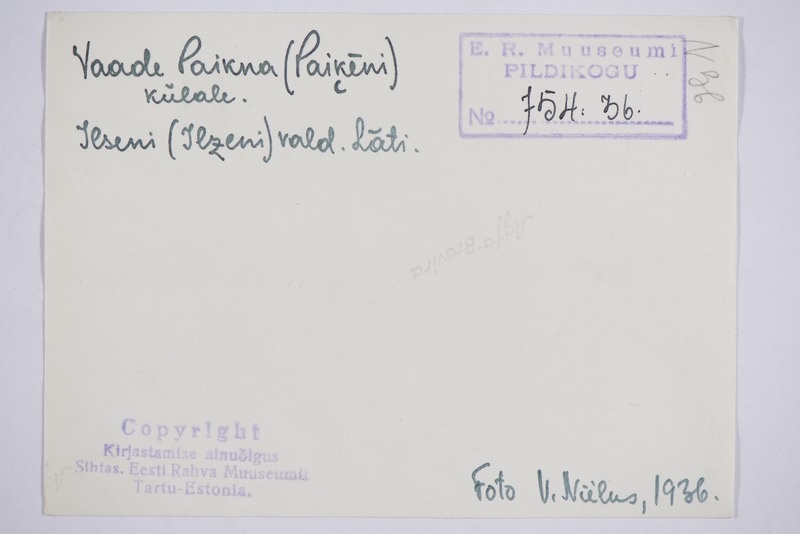 Vaade Paikna (Paiķēni)
külale.
Ilseni (Ilzeni) vald. Läti.
E. R. Muuseumi
PILDIKOGU
No 754: 36.
Agfa-Brovira
Copyright
Kirjastamise ainuõigus
Sihtas. Eesti Rahva Muuseumil
Tartu-Estonia.
Foto V. Niilus, 1936.